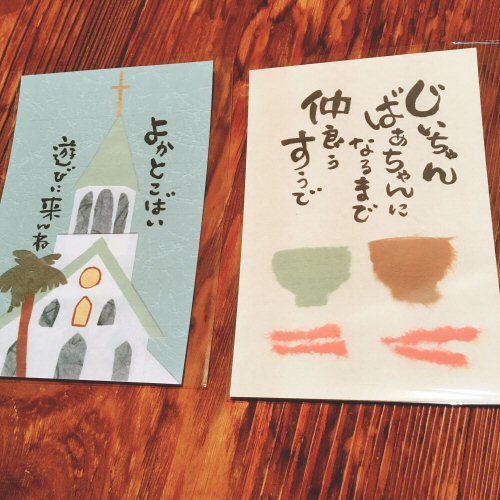 よかとこばい
遊びに来んね
じいちゃん
ばあちゃんに
なるまで
仲良う
すうで